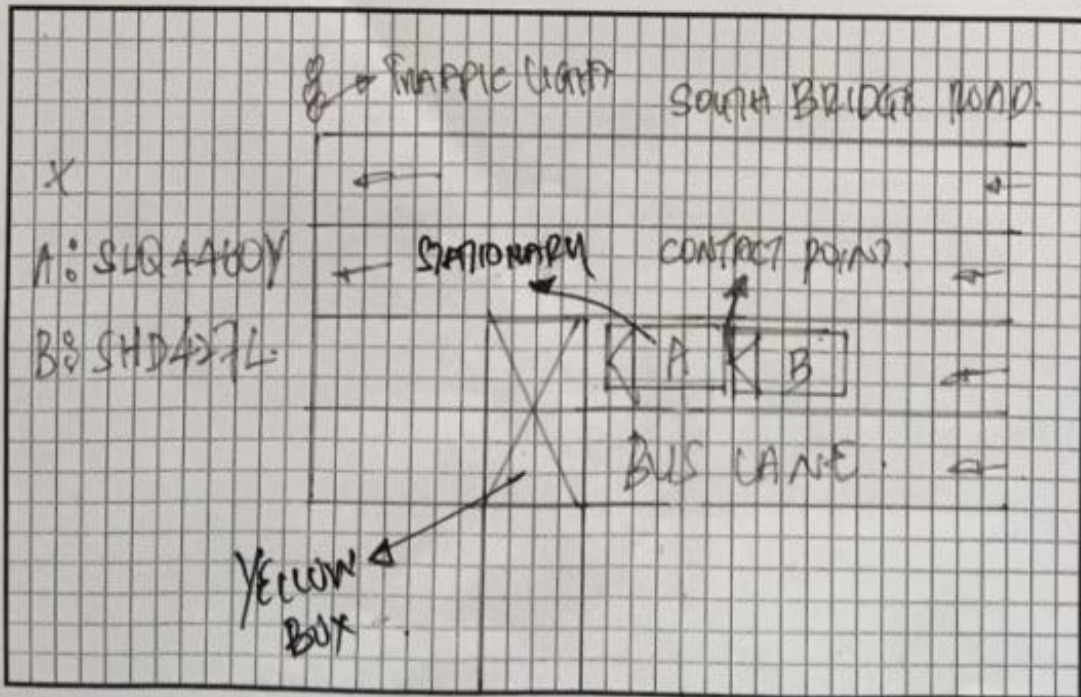 TRAFFIC LIGHT
SOUTH BRIDGE ROAD.
X
A: SLQ4460Y
STATIONARY
CONTACT POINT.
B: SHD427L.
A
B
BUS LANE.
YELLOW
BOX